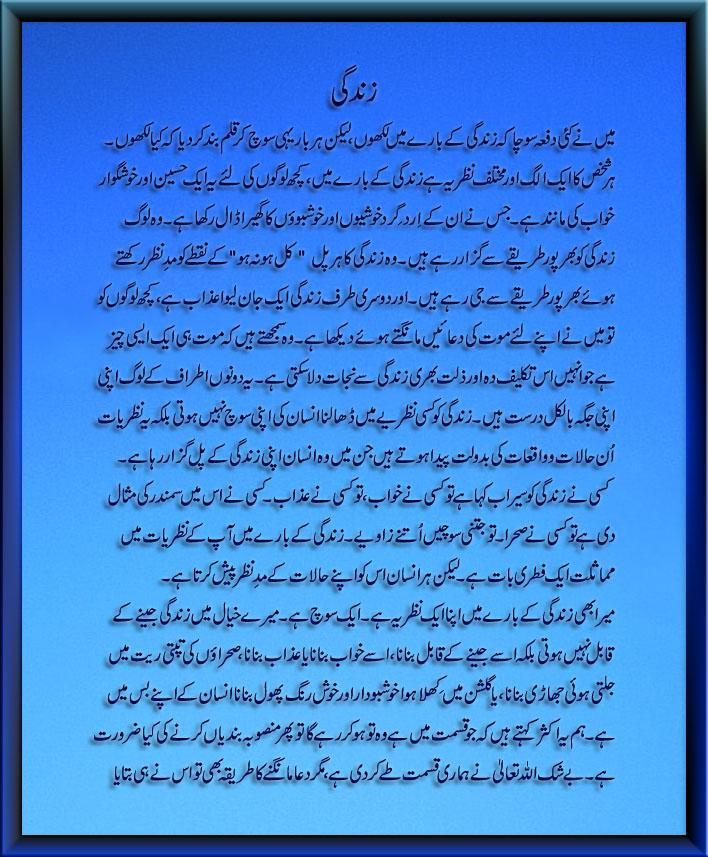 زندگی
میں نے کئی دفعہ سوچا کہ زندگی کے بارے میں لکھوں، لیکن ہر بار یہی سوچ کر قلم بند کر دیا کہ کیا لکھوں۔
ہر شخص کا ایک الگ اور مختلف نظریہ ہے زندگی کے بارے میں، کچھ لوگوں کی لئے یہ ایک حسین اور خوشگوار
خواب کی مانند ہے۔ جس نے ان کے اِرد گرد خوشیوں اور خوشبوؤں کا گھیرا ڈال رکھا ہے۔ وہ لوگ
زندگی کو بھر پور طریقے سے گزار رہے ہیں۔ وہ زندگی کا ہر پل " کل ہو نہ ہو" کے نقطے کو مدِ نظر رکھتے
ہوئے بھر پور طریقے سے جی رہے ہیں۔ اور دوسری طرف زندگی ایک جان لیوا عذاب ہے، کچھ لوگوں کو
تو میں نے اپنے لئے موت کی دعائیں مانگتے ہوئے دیکھا ہے۔ وہ سمجھتے ہیں کہ موت ہی ایک ایسی چیز
ہے جو انہیں اس تکلیف دہ اور ذلت بھری زندگی سے نجات دلا سکتی ہے۔ یہ دونوں اطراف کے لوگ اپنی
اپنی جگہ بالکل درست ہیں۔ زندگی کو کسی نظریے میں ڈھالنا انسان کی اپنی سوچ نہیں ہوتی بلکہ یہ نظریات
اُن حالات و واقعات کی بدولت پیدا ہوتے ہیں جن میں وہ انسان اپنی زندگی کے پل گزار رہا ہے۔
کسی نے زندگی کو سیراب کہا ہے تو کسی نے خواب، تو کسی نے عذاب۔ کسی نے اس میں سمندر کی مثال
دی ہے تو کسی نے صحرا۔ تو جتنی سوچیں اُتنے زاویے۔ زندگی کے بارے میں آپ کے نظریات میں
مماثلت ایک فطری بات ہے۔ لیکن ہر انسان اس کو اپنے حالات کے مدِ نظر پیش کرتا ہے۔
میرا بھی زندگی کے بارے میں اپنا ایک نظریہ ہے۔ ایک سوچ ہے۔ میرے خیال میں زندگی جینے کے
قابل نہیں ہوتی بلکہ اسے جینے کے قابل بنانا، اسے خواب بنانا یا عذاب بنانا، صحراؤں کی تپتی ریت میں
جلتی ہوئی جھاڑی بنانا، یا گلشن میں کِھلا ہوا خوشبودار اور خوش رنگ پھول بنانا انسان کے اپنے بس میں
ہے۔ ہم یہ اکثر کہتے ہیں کہ جو قسمت میں ہے وہ تو ہو کر رہے گا تو پھر منصوبہ بندیاں کرنے کی کیا ضرورت
ہے۔ بے شک اللہ تعالیٰ نے ہماری قسمت طے کر دی ہے، مگر دعا مانگنے کا طریقہ بھی تو اس نے ہی بتایا